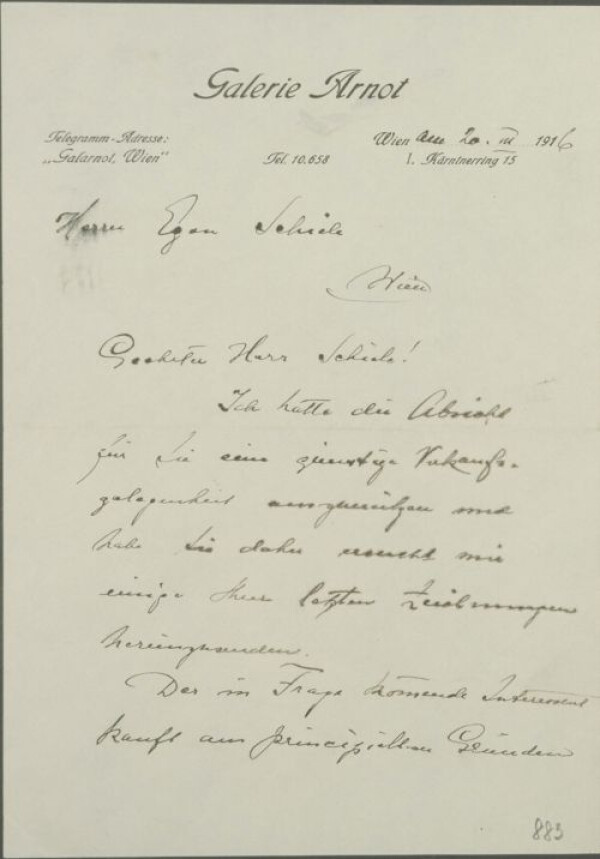 Galerie Arnot
Telegramm-Adresse:
„Galarnot, Wien"
Tel. 10.658
Wien am 20. III 1916
I. Kärntnerring 15
Herrn Egon Schiele
Wien
Geehrter Herr Schiele!
Ich hatte die Absicht
für Sie eine günstige Verkaufs-
gelegenheit auszunützen und
habe Sie daher ersucht mir
einige Ihrer letzten Zeichnungen
hereinzusenden.
Der in Frage kommende Interessent
kauft aus principiellen Gründen
883